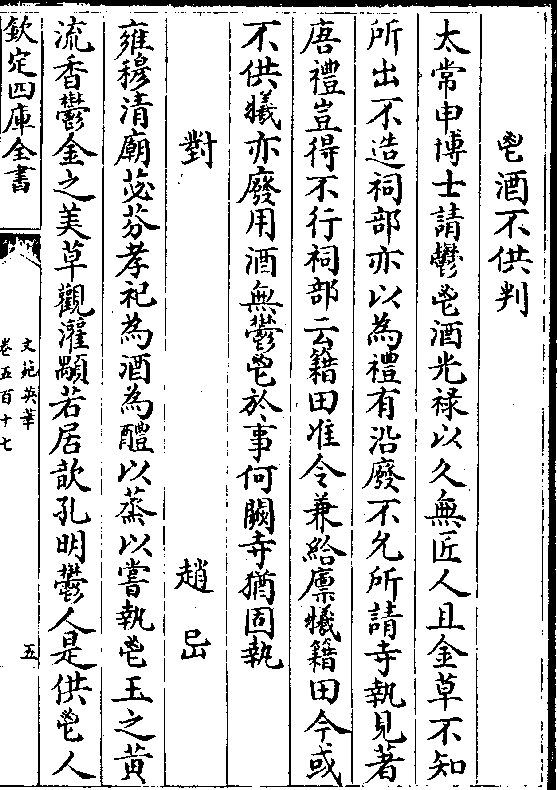 鬯酒不供判
太常申博士請鬱鬯酒光祿以久無匠人且金草不知
所出不造祠部亦以為禮有沿廢不允所請寺執見著
唐禮豈得不行祠部云籍田准令兼給廩犧籍田今或
不供犧亦廢用酒無鬱鬯於事何闕寺猶固執
對 趙岊
雍穆清廟苾芬孝祀為酒為醴以蒸以嘗執鬯玉之黃
流香鬱金之美草觀灌顒若居歆孔明鬱人是供鬯人
欽定四庫全書
文苑英華
卷五百十七
五